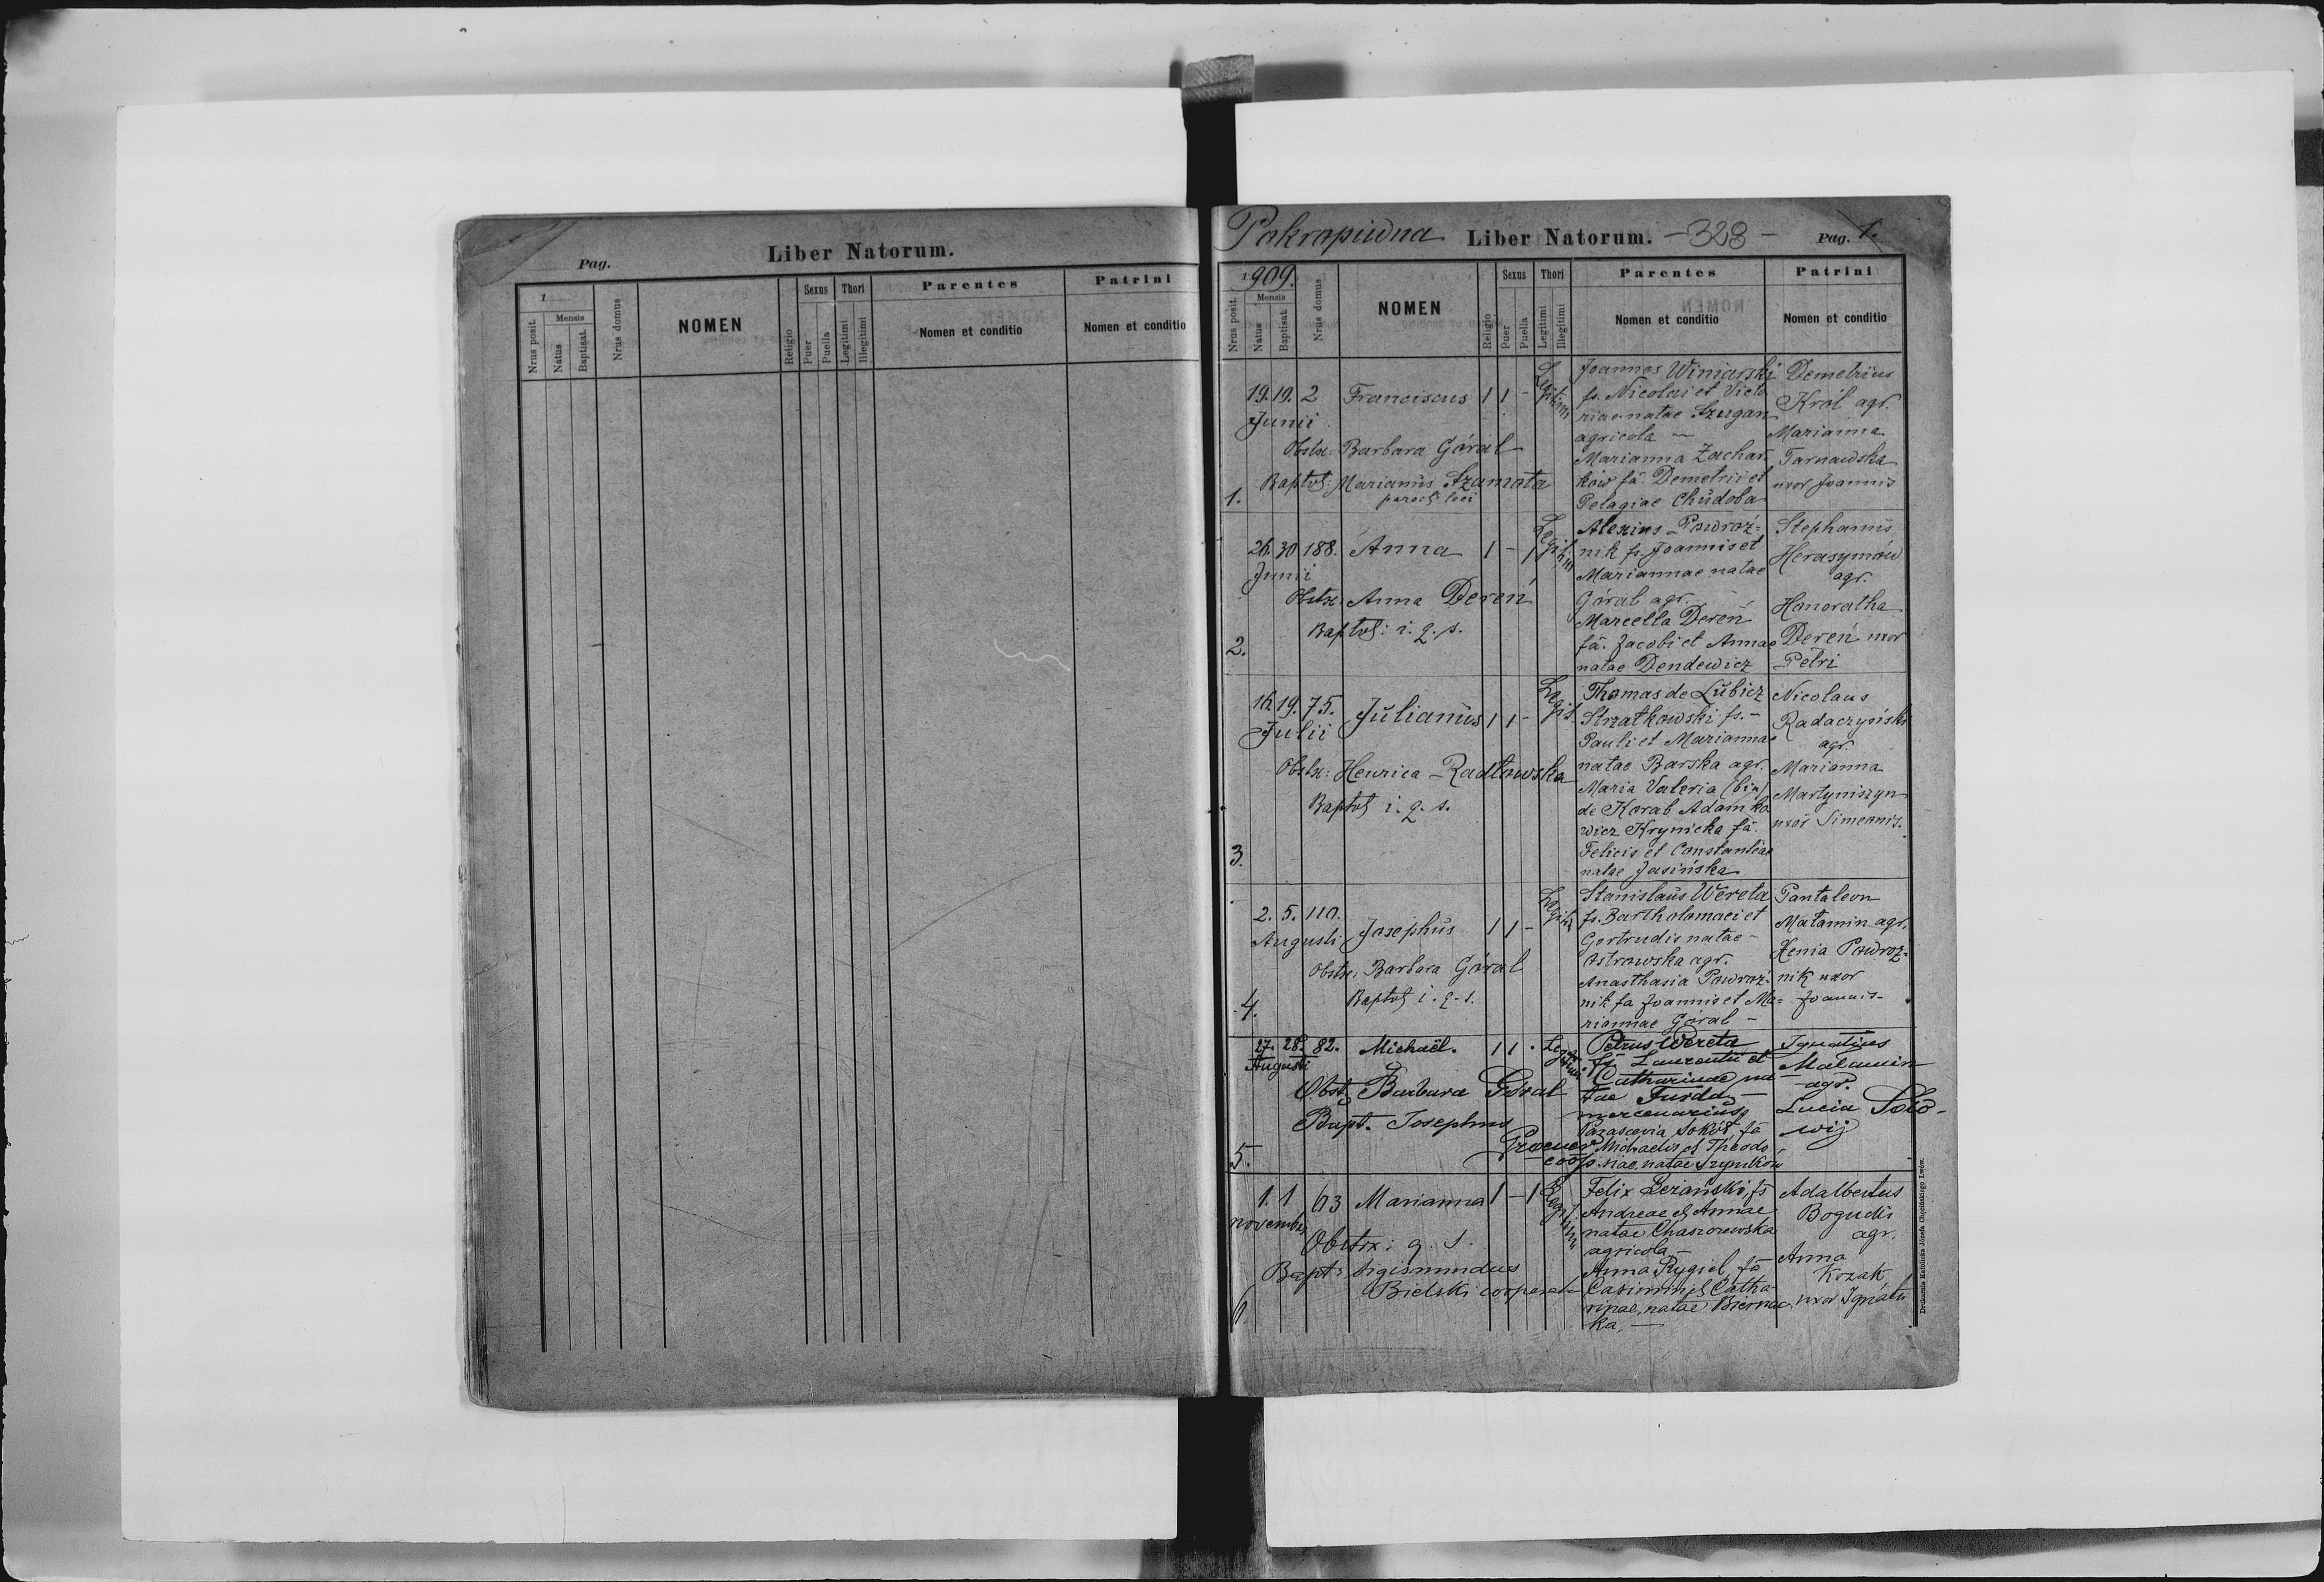 Pag.
Liber Natorum.
1
Nrus posit.
Mensis
Natus
Baptisat.
Nrus domus
NOMEN
Religio
Sexus
Puer
Puella
Thori
Legitimi
Illegitimi
Parentes
Nomen et conditio
Patrini
Nomen et conditio
Pokropiwna Liber Natorum. -328- Pag. 1.
1909.
Nrus posit.
Mensis
Natus
Baptisat.
Nrus domus
NOMEN
Religio
Sexus
Puer
Puella
Thori
Legitimi
Illegitimi
Parentes
Nomen et conditio
Patrini
Nomen et conditio
1.
19. 19. 2 Franciscus 1 1 - Legitimi
Junii
Obstx: Barbara Góral
Baptvs: Marianus Szamota
paroch loci
Joannes Winiarski
fs. Nicolai et Victo
riae natae Szugan
agricola
Marianna Zachar
ków fa Demetrii et
Pelagiae Chudoba
Demetrius
Król agr.
Marianna
Tarnawska
uxor Joannis
2.
26. 30 188. Anna 1 - 1 Legitim
Junii
Obstx: Anna Dereń
Baptvs: i. q. s.
Alexius Powroź-
nik fs. Joannis et
Mariannae natae
Góral agr.
Marcella Dereń
fa. Jacobi et Annae
natae Dendewicz
Stephanus
Herasymów
agr.
Honoratha
Dereń uxor
Petri
3.
16. 19. 75. Julianus 1 1 - Legit.
Julii
Obstx: Henrica Radłowska
Baptvs i. q. s.
Thomas de Lubicz
Strzałkowski fs. -
Pauli et Mariannae
natae Barska agr.
Maria Valeria (bin)
de Korab Adamko
wicz Krynicka fa.
Felicis et Constantiae
natae Jasińska
Nicolaus
Radaczyński
agr.
Marianna
Martyniszyn
uxor Simeonis.
4.
2. 5. 110. Josephus 1 1 - Legitim
Augusti
Obstx: Barbara Góral
Baptvs i. q. s.
Stanislaus Wereta
fs. Bartholomaei et
Gertrudis natae -
Ostrowska agr.
Anasthasia Powroź-
nik fa Joannis et Ma-
riannae Góral -
Pantaleon
Matamin agr.
Xenia Powroź-
nik uxor
Joannis -
5.
27. 28. 82. Michaël. 1 1 . Legitimi
Augusti
Obstx Barbara Góral
Bapt. Josephus
coop.
Petrus Wereta
fs Laurentii et
Catharinae na
tae Furda -
mercenarius,
Parascevia Sokół fa
Michaelis et Theodo
siae, natae Szymków
Ignatius
Matamin
agr.
Lucia Soło-
wij
6
1. 1 63 Marianna 1 - 1 Legitimi
novembris
Obstx: q. s.
Bapt: Sigismundus
Bielski cooperator
Felix Leżański, fs
Andreae et Annae
natae Chaszowska
agricola, -
Anna Rygiel, fa
Casimiri et Catha-
rinae, natae Biernac
ka, -
Adalbertus
Bogudis
agr.
Anna
Kozak
uxor Ignatii
Drukarnia Katolicka Józefa Chęcińskiego Lwów.